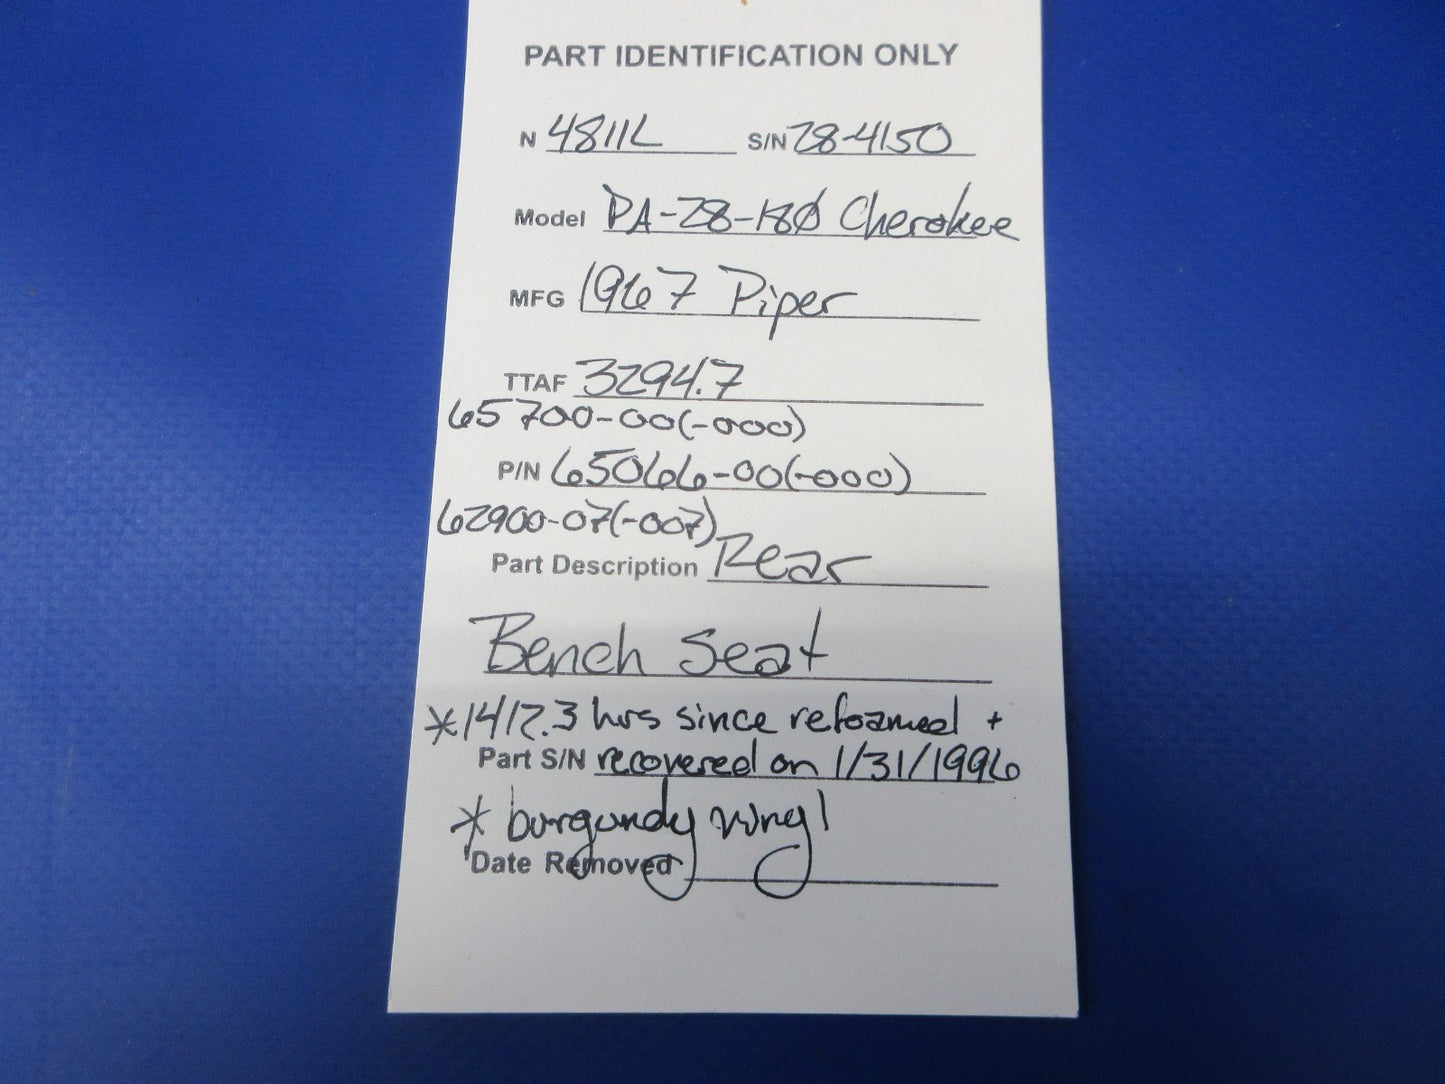 PART IDENTIFICATION ONLY
N 4811L S/N 28-4150
Model PA-28-180 Cherokee
MFG 1967 Piper
TTAF 3294.7
65700-00(-000)
P/N 65066-00(-000)
62900-07(-007)
Part Description Rear
Bench Seat
*1412.3 hrs since refoamed +
Part S/N recovered on 1/31/1996
* burgundy vinyl
Date Removed